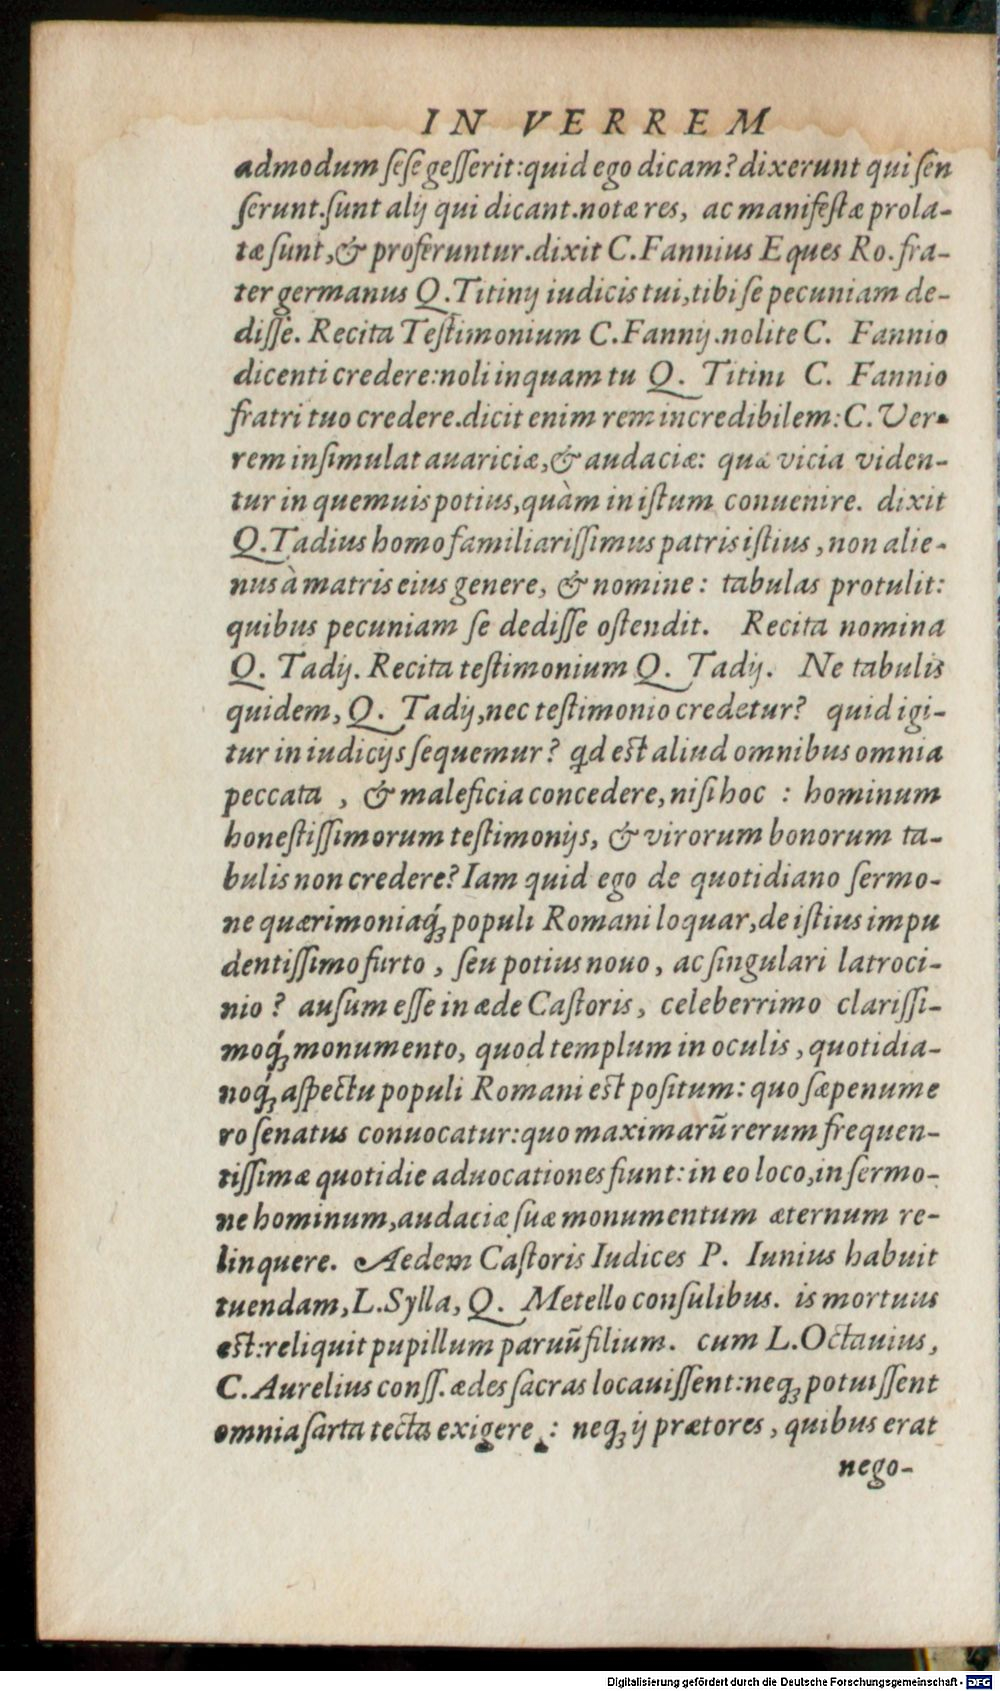 IN VERREM
admodum ſeſe geſſerit:quid ego dicam? dixerunt qui ſen
ſerunt.ſunt alij qui dicant.notæ res, ac manifeſtæ prola-
tæ ſunt,& proferuntur.dixit C.Fannius Eques Ro.fra-
ter germanus Q.Titinij iudicis tui,tibi ſe pecuniam de-
diſſe. Recita Teſtimonium C.Fannij.nolite C. Fannio
dicenti credere:noli inquam tu Q. Titini C. Fannio
fratri tuo credere.dicit enim rem incredibilem:C.Ver-
rem inſimulat auariciæ,& audaciæ: quæ vicia viden-
tur in quemuis potius,quàm in iſtum conuenire. dixit
Q.Tadius homo familiariſſimus patris iſtius,non alie-
nus à matris eius genere, & nomine: tabulas protulit:
quibus pecuniam ſe dediſſe oſtendit. Recita nomina
Q. Tadij. Recita teſtimonium Q. Tadij. Ne tabulis
quidem, Q. Tadij,nec teſtimonio credetur? quid igi-
tur in iudicijs ſequemur? qd eſt aliud omnibus omnia
peccata , & maleficia concedere,niſi hoc : hominum
honeſtiſſimorum teſtimonijs, & virorum bonorum ta-
bulis non credere? Iam quid ego de quotidiano ſermo-
ne quærimoniaq́; populi Romani loquar,de iſtius impu
dentiſſimo furto , ſeu potius nouo, ac ſingulari latroci-
nio? auſum eſſe in æde Caſtoris, celeberrimo clariſſi-
moq́; monumento, quod templum in oculis, quotidia-
noq́; aſpectu populi Romani eſt poſitum: quo ſæpenume
ro ſenatus conuocatur:quo maximarũ rerum frequen-
tiſſimæ quotidie aduocationes fiunt: in eo loco,in ſermo-
ne hominum,audaciæ ſuæ monumentum æternum re-
linquere. Aedem Caſtoris Iudices P. Iunius habuit
tuendam,L.Sylla, Q. Metello conſulibus. is mortuus
eſt:reliquit pupillum paruũ filium. cum L.Octauius,
C.Aurelius conſſ.ædes ſacras locauiſſent:neq; potuiſſent
omnia ſarta tecta exigere : neq; ij prætores, quibus erat
nego-
Digitalisierung gefördert durch die Deutsche Forschungsgemeinschaft - DFG